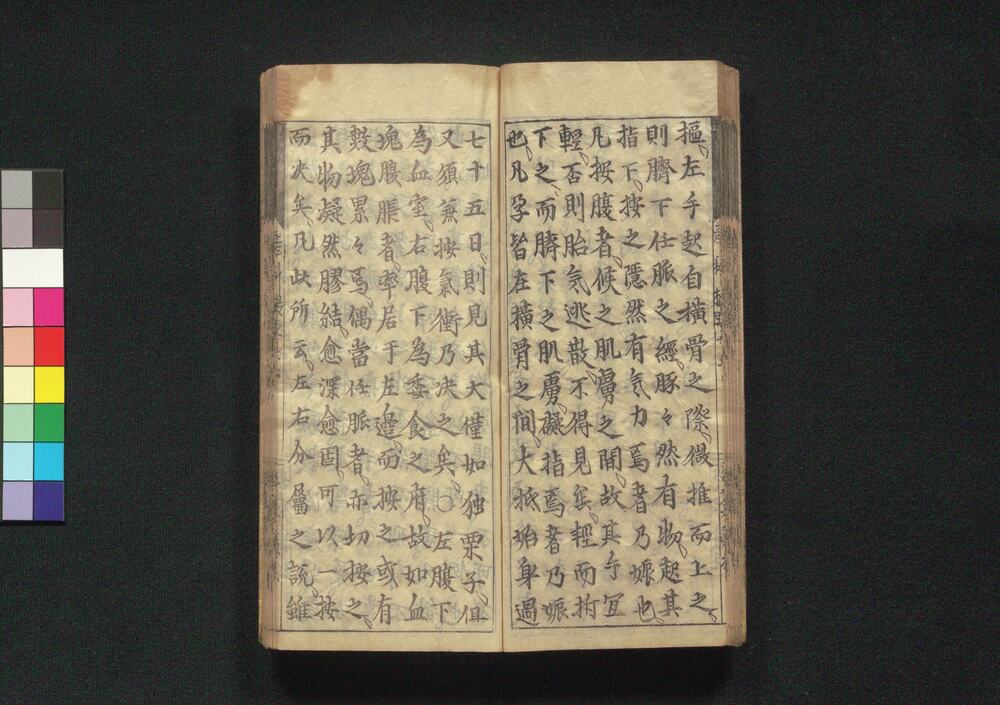 摳左手起自橫骨之際微推而上之
則臍下任脈之經豚々然有物起其
指下按之隱然有氣力焉者乃娠也
凡按腹者候之肌膚之間故其手宜
輕否則胎氣逃散不得見矣輕而拊
下之而臍下之肌膚礙指焉者乃娠
也凡孕皆在橫骨之間大抵始身過
七十五日則見其大僅如独栗子但
又須兼按氣衝乃决之矣○左腹下
為血室右腹下為委食之府故如血
塊腹脹者率居于左邉而按之或有
數塊累々焉偶當任脈者亦切按之
其物凝然膠結愈深愈固可以一按
而决矣凡此所云左右分屬之説雖